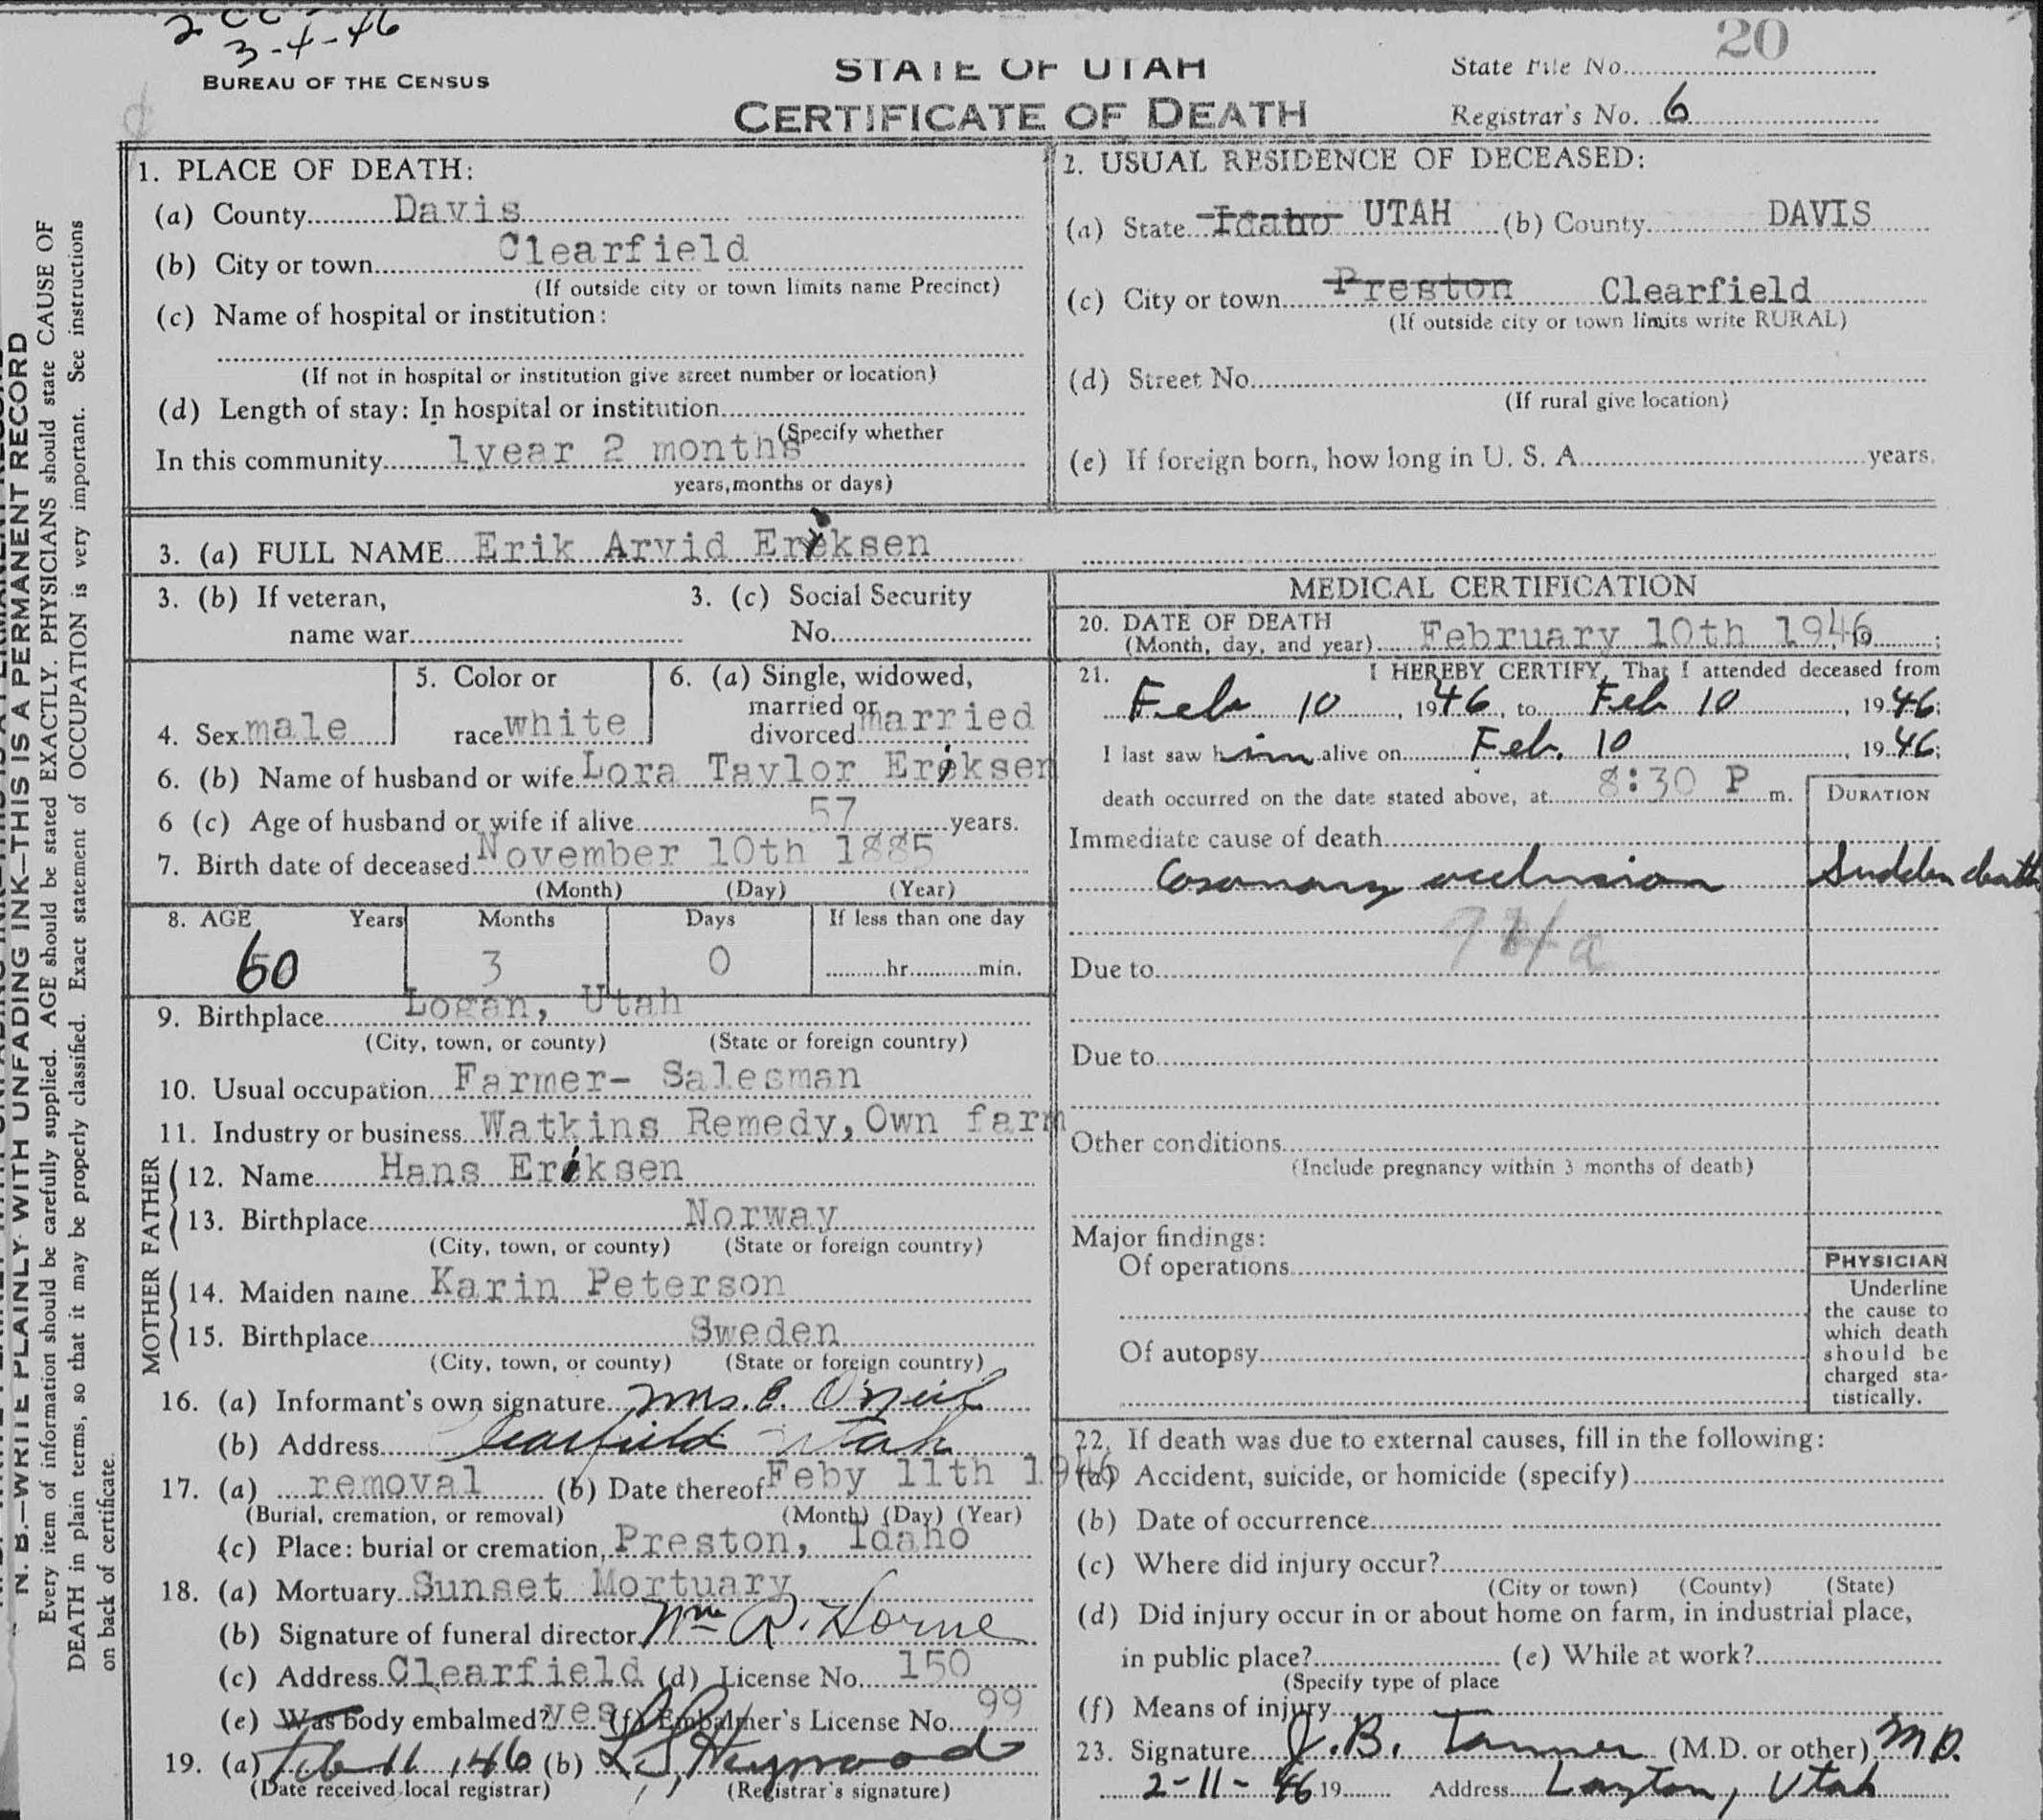 3-4-46
BUREAU OF THE CENSUS
STATE OF UTAH
CERTIFICATE OF DEATH
State File No. 20
Registrar's No. 6
N. B.—WRITE PLAINLY WITH UNFADING INK—THIS IS A PERMANENT RECORD
Every item of information should be carefully supplied. AGE should be stated EXACTLY. PHYSICIANS should state CAUSE OF
DEATH in plain terms, so that it may be properly classified. Exact statement of OCCUPATION is very important. See instructions
on back of certificate.
1. PLACE OF DEATH:
(a) County Davis
(b) City or town Clearfield
(If outside city or town limits name Precinct)
(c) Name of hospital or institution:
(If not in hospital or institution give street number or location)
(d) Length of stay: In hospital or institution
(Specify whether
In this community 1year 2 months
years, months or days)
2. USUAL RESIDENCE OF DECEASED:
(a) State Idaho UTAH (b) County DAVIS
(c) City or town Preston Clearfield
(If outside city or town limits write RURAL)
(d) Street No.
(If rural give location)
(e) If foreign born, how long in U. S. A. years.
3. (a) FULL NAME Erik Arvid Eriksen
3. (b) If veteran,
name war
3. (c) Social Security
No.
4. Sex male
5. Color or
race white
6. (a) Single, widowed,
married or
divorced married
6. (b) Name of husband or wife Lora Taylor Eriksen
6 (c) Age of husband or wife if alive 57 years.
7. Birth date of deceased November 10th 1885
(Month) (Day) (Year)
8. AGE Years Months Days If less than one day
60 3 0 hr. min.
9. Birthplace Logan, Utah
(City, town, or county) (State or foreign country)
10. Usual occupation Farmer- Salesman
11. Industry or business Watkins Remedy, Own farm
FATHER
12. Name Hans Eriksen
13. Birthplace Norway
(City, town, or county) (State or foreign country)
MOTHER
14. Maiden name Karin Peterson
15. Birthplace Sweden
(City, town, or county) (State or foreign country)
16. (a) Informant's own signature Mrs. E. O'Neil
(b) Address Clearfield Utah
17. (a) removal (b) Date thereof Feby 11th 1946
(Burial, cremation, or removal) (Month) (Day) (Year)
(c) Place: burial or cremation Preston, Idaho
18. (a) Mortuary Sunset Mortuary
(b) Signature of funeral director Wm R. Horne
(c) Address Clearfield (d) License No. 150
(e) Was body embalmed? yes (f) Embalmer's License No. 99
19. (a) Feb 11, 46 (b) L S Heywood
(Date received local registrar) (Registrar's signature)
MEDICAL CERTIFICATION
20. DATE OF DEATH
(Month, day, and year) February 10th 1946;
21. I HEREBY CERTIFY, That I attended deceased from
Feb 10, 1946, to Feb 10, 1946;
I last saw him alive on Feb. 10, 1946;
death occurred on the date stated above, at 8:30 P m.
DURATION
Immediate cause of death
Coronary occlusion Sudden death
Due to
Due to
Other conditions
(Include pregnancy within 3 months of death)
Major findings:
Of operations
Of autopsy
PHYSICIAN
Underline
the cause to
which death
should be
charged sta-
tistically.
22. If death was due to external causes, fill in the following:
(a) Accident, suicide, or homicide (specify)
(b) Date of occurrence
(c) Where did injury occur?
(City or town) (County) (State)
(d) Did injury occur in or about home on farm, in industrial place,
in public place? (e) While at work?
(Specify type of place
(f) Means of injury
23. Signature J. B. Tanner (M.D. or other) M.D.
2-11-46 19 Address Layton, Utah